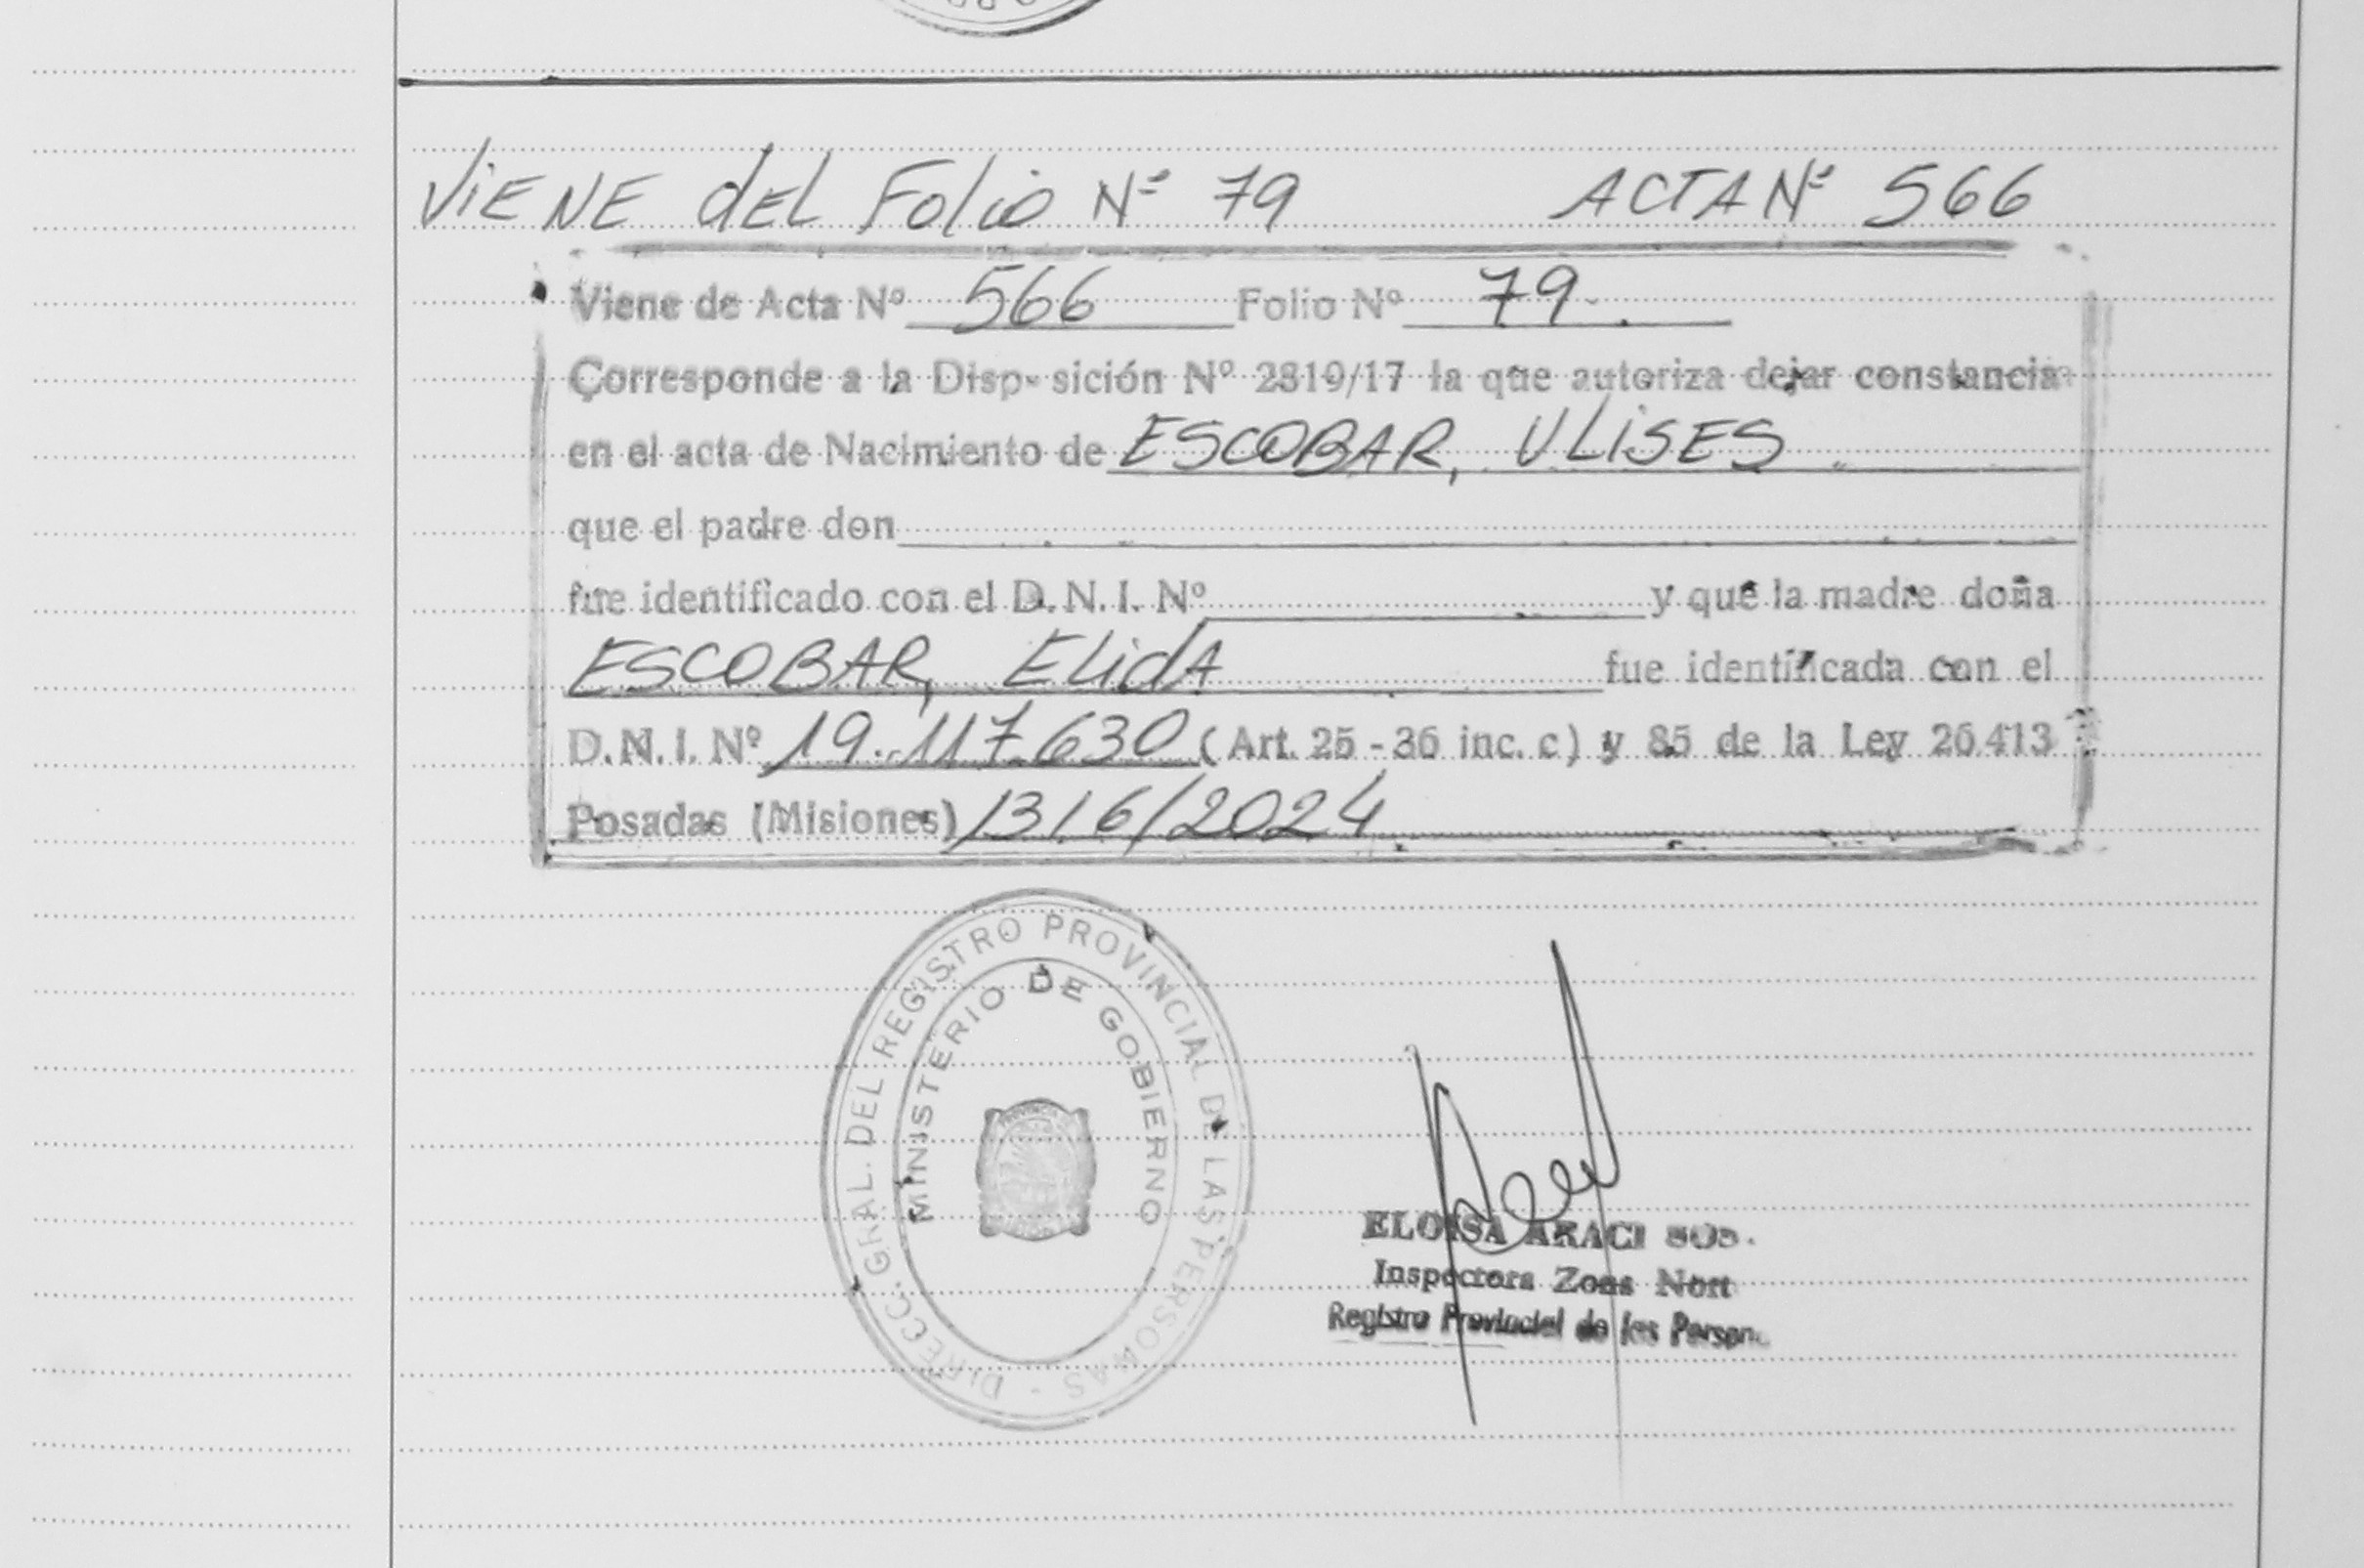 ViENE dEL Folio Nº 79 ACTA Nº 566
Viene de Acta Nº 566 Folio Nº 79
Corresponde a la Disp sición Nº 2819/17 la que autoriza dejar constancia
en el acta de Nacimiento de ESCOBAR, ULiSES
que el padre don
fue identificado con el D.N.I. Nº y que la madre doña
ESCOBAR, ELidA fue identificada con el
D.N.I. Nº 19.117.630 (Art. 25 - 36 inc. c) y 85 de la Ley 26.413
Posadas (Misiones) 13/6/2024
DIRECC. GRAL. DEL REGISTRO PROVINCIAL DE LAS PERSONAS -
MINISTERIO DE GOBIERNO
ELOISA ARACI
Inspectora Zona Nort
Registro Provincial de las Person